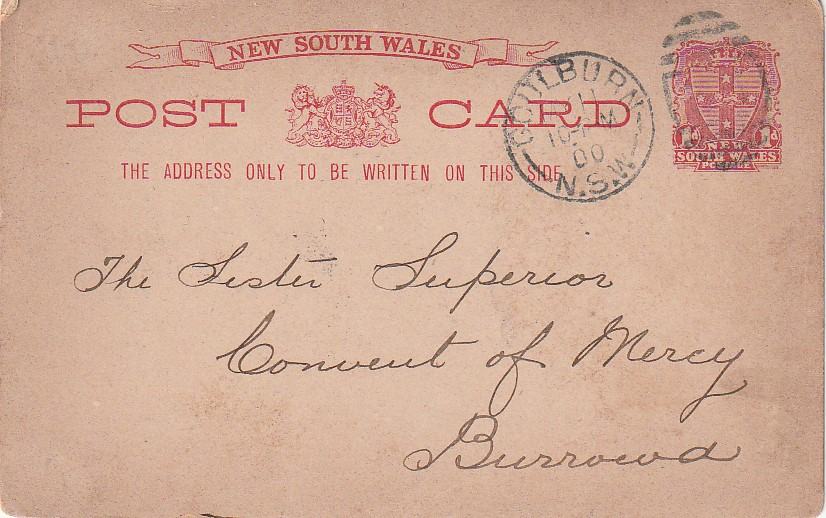 NEW SOUTH WALES
POST CARD
THE ADDRESS ONLY TO BE WRITTEN ON THIS SIDE
GOULBURN
11
00
N.S.W
1d
NEW
SOUTH WALES
POSTAGE
The Sister Superior
Convent of Mercy
Burrowa